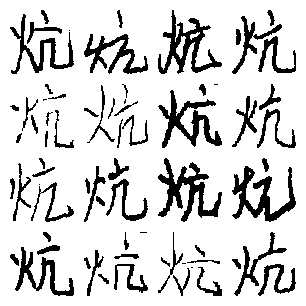 炕炕炕炕
炕炕炕炕
炕炕炕炕
炕炕炕炕